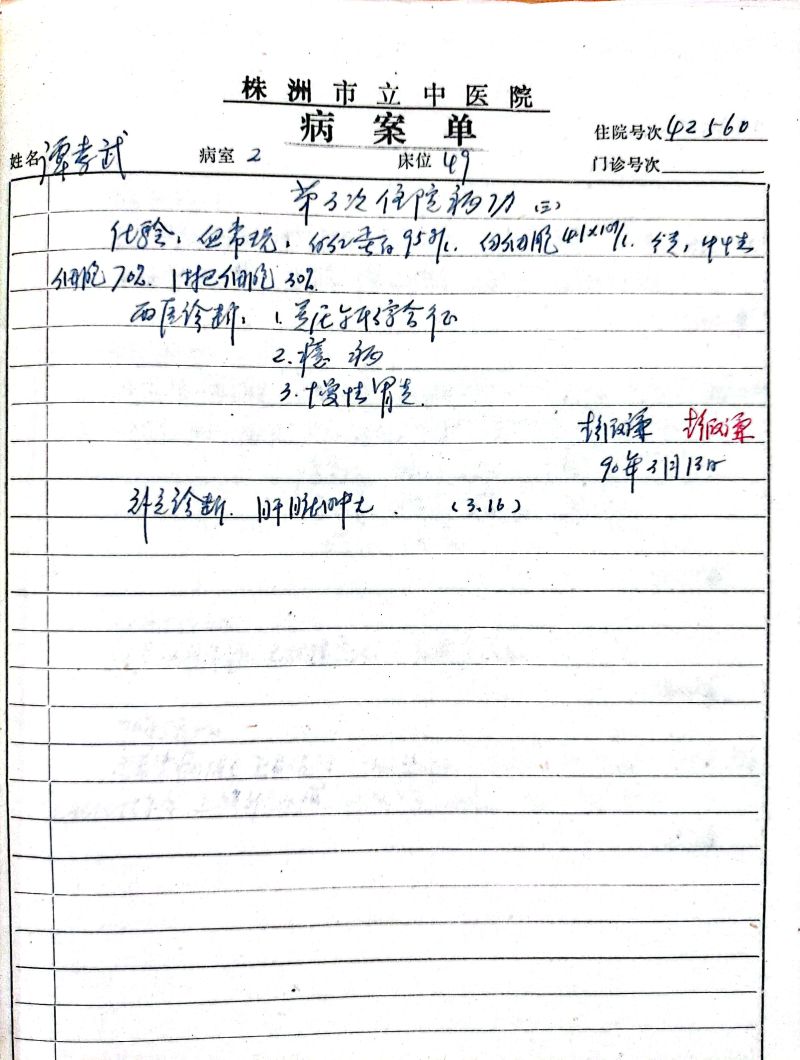 株洲市立中医院
病案单
住院号次 42560
姓名 谭孝武 病室 2 床位 49 门诊号次
第3次住院病历 (三)
化验:血常规:血红蛋白95g/L. 白细胞4.1×10⁹/L. 中性
细胞70%. 淋巴细胞30%.
西医诊断:1.
2. 病
3. 慢性胃炎.
90年3月13日
补充诊断. 肝脏肿大. (3.16)